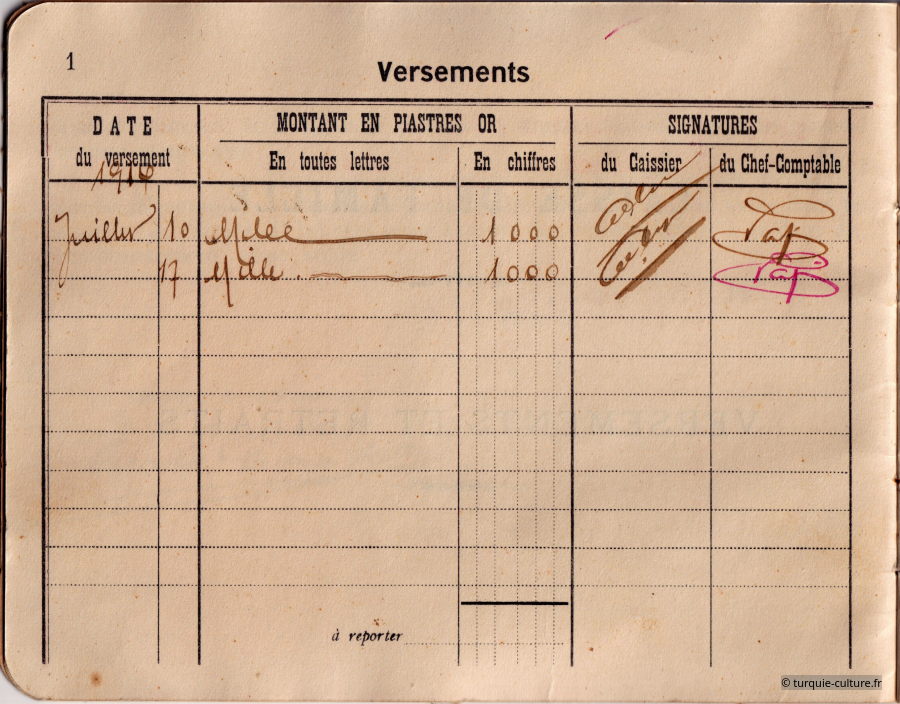 1
Versements
DATE
du versement
MONTANT EN PIASTRES OR
En toutes lettres
En chiffres
SIGNATURES
du Caissier
du Chef-Comptable
Juillet 10 Mille 1000
17 Mille 1000
à reporter
© turquie-culture.fr